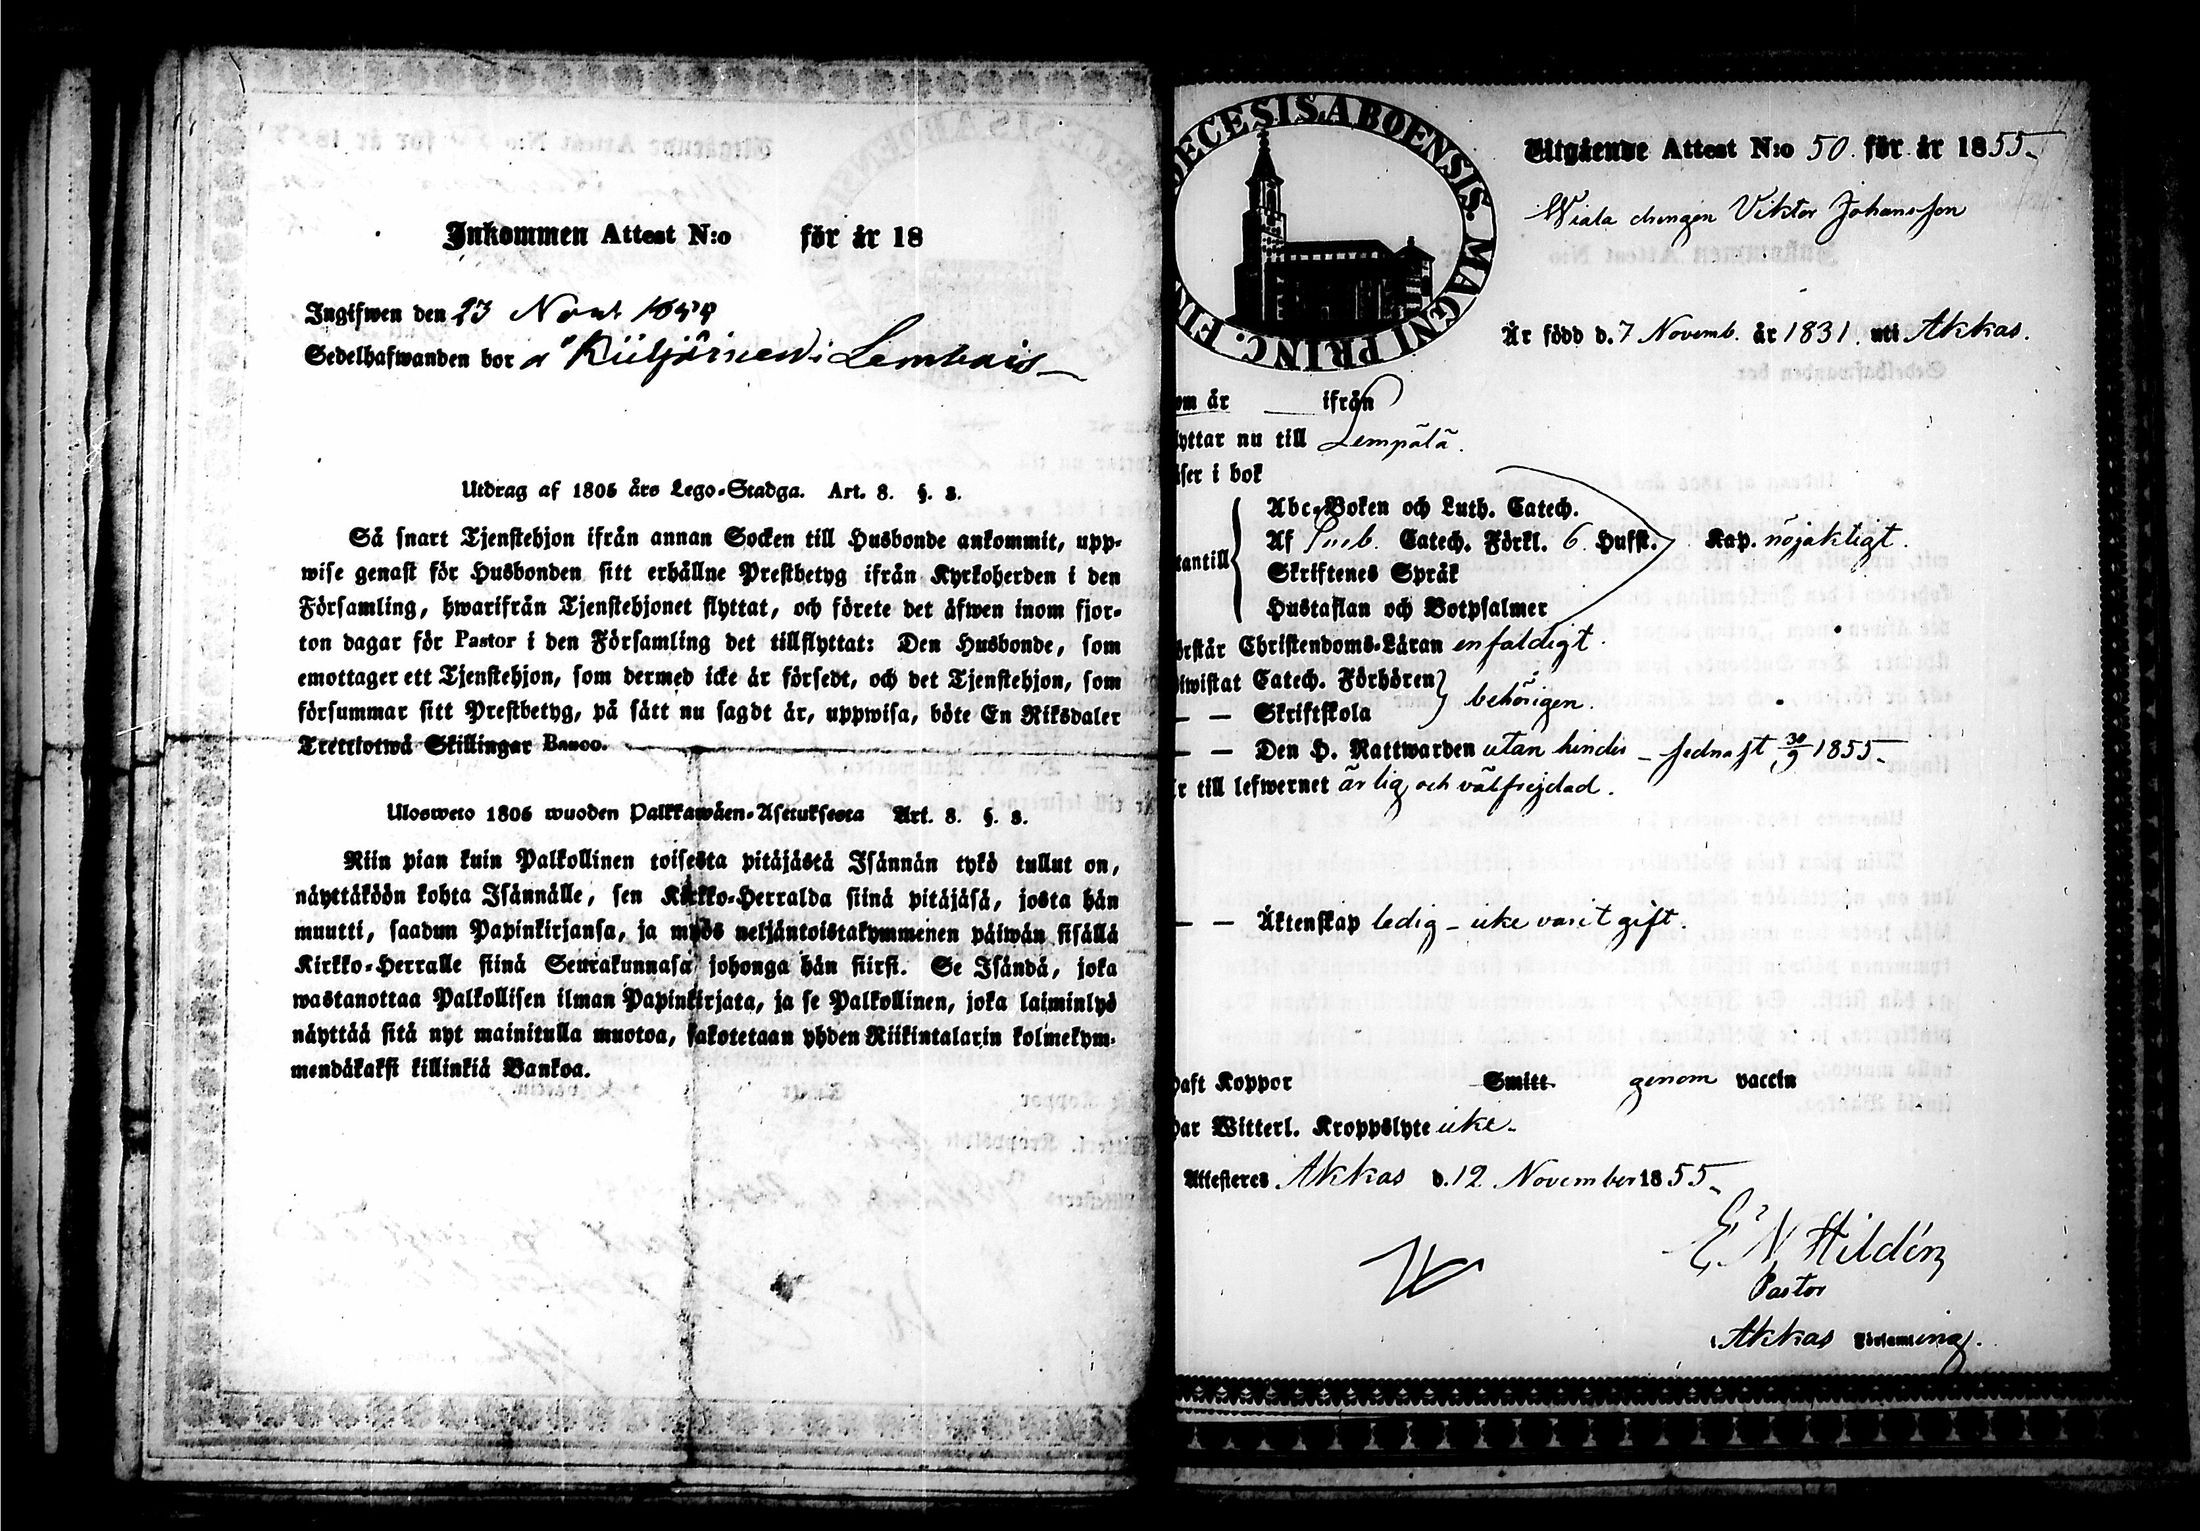 Inkommen Attest N:o för år 18
Ingifwen den 23 Nov
Sedelhafwanden bor å i Lembois
Utdrag af 1805 års Lego-Stadga. Art. 8. §. 8.
Så snart Tjenstehjon ifrån annan Socken till Husbonde ankommit, upp-
wise genast för Husbonden sitt erhållne Prestbetyg ifrån Kyrkoherden i den
Församling, hwarifrån Tjenstehjonet flyttat, och förete det äfwen inom fjor-
ton dagar för Pastor i den Församling det tillflyttat: Den Husbonde, som
emottager ett Tjenstehjon, som dermed icke är försedt, och det Tjenstehjon, som
försummar sitt Prestbetyg, på sätt nu sagdt är, uppwisa, böte En Riksdaler
Trettiotwå Skillingar Banco.
Ulosweto 1805 wuoden Palkkawäen-Asetuksesta Art. 8. §. 8.
Niin pian kuin Palkollinen toisesta pitäjästä Isännän tykö tullut on,
näyttäköön kohta Isännälle, sen Kirkko-Herralda siinä pitäjäsä, josta hän
muutti, saadun Papinkirjansa, ja myös neljäntoistakymmenen päiwän sisällä
Kirkko-Herralle siinä Seurakunnasa johonga hän siirsi. Se Isändä, joka
wastanottaa Palkollisen ilman Papinkirjata, ja se Palkollinen, joka laiminlyö
näyttää sitä nyt mainitulla muotoa, sakotetaan yhden Riikintalarin kolmekym-
mendäkaksi killinkiä Bankoa.
DECESIS ABOENSIS. MAGNI PRINC. FIN
Utgående Attest N:o 50. för år 1855.
Wiala drengen Viktor Johansson
Är född d. 7 Novemb. år 1831. uti Akkas.
om år ifrån
lyttar nu till Lempälä.
äser i bok
Abc-Boken och Luth. Catech.
Af Sveb. Catech. Förkl. 6. Hufst. Kap. nöjaktigt.
tantill
Skriftenes Språk
Hustaflan och Botpsalmer
örstår Christendoms-Läran enfaldigt.
Biwistat Catech. Förhören
— — Skriftskola
behörigen.
— — Den H. Nattwarden utan hinder – sednast 30/9 1855.
r till lefwernet ärlig och välfrejdad.
— — Äktenskap ledig – icke varit gift.
haft Koppor Smitt genom vaccin
har Witterl. Kroppslyte icke.
Attesteres Akkas d. 12 November 1855.
E N Hildén
Pastor
i Akkas Församling.